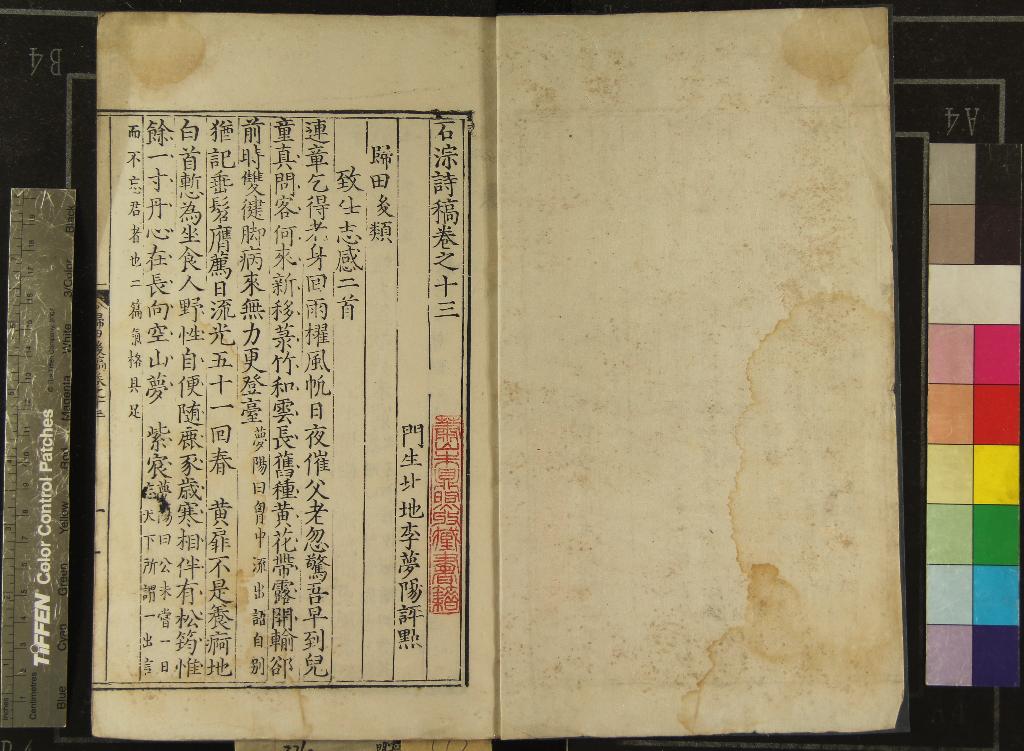 石淙詩稿卷之十三
門生北地李夢陽評㸃
歸田後類
致仕志感二首
連章乞得老身回雨櫂風帆日夜催父老忽驚吾早到兒
童真問客何來新移菉竹和雲長舊種黄花帶露開輸卻
前時雙健脚病來無力更登臺夢陽曰胷中流出語自别
猶記垂髫膺薦日流光五十一回春 黄扉不是養痾地
白首慙為坐食人野性自便随鹿豕歲寒相伴有松筠惟
餘一寸丹心在長向空山夢 紫宸夢陽曰公未嘗一日
忘天下所謂一出言
而不忘君者也二篇氣格具足
TIFFEN Color Control Patches
Centimetres
Inches
Blue
Cyan
Green
Yellow
Red
Magenta
White
3/Color
Black
B4
A4